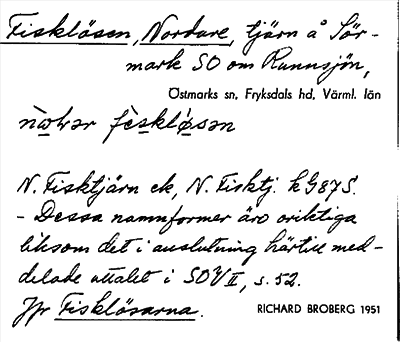 Fisklösen, Nordare, tjärn å Sör-
mark SO om Runnsjön,
Östmarks sn, Fryksdals hd, Värml. län
N. Fisktjärn ek, N. Fisktj. k G87S.
- Dessa namnformer äro oriktiga
liksom det i anslutning härtill med-
delade uttalet i SOV II, s. 52.
Jfr Fisklösarna.
RICHARD BROBERG 1951